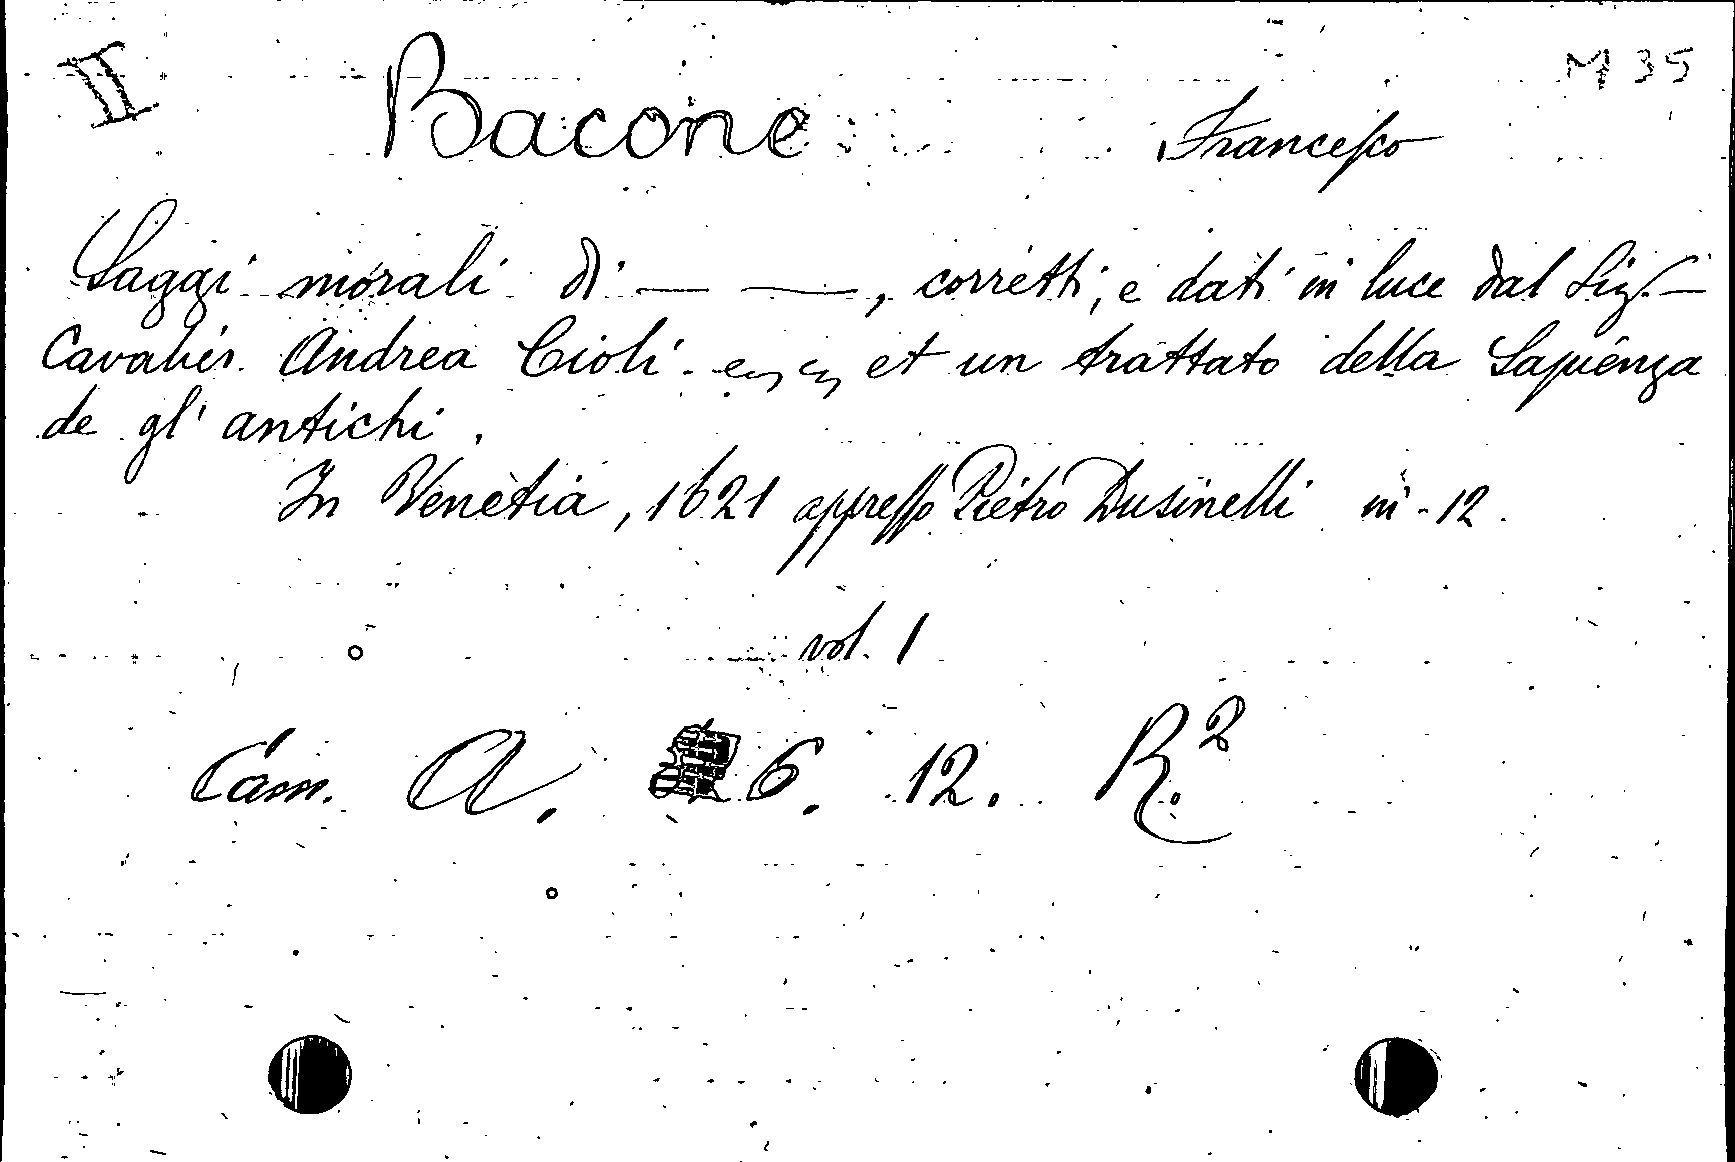 II Bacone Francesco M 35
Saggi morali di — —, corretti, e dati in luce dal Sig.
Cavalier. Andrea Cioli. et un trattato della Sapienza
de gl' antichi.
In Venetia, 1621 appresso Pietro Dusinelli in-12.
vol. 1
Cam. A. 6. 12. R.2